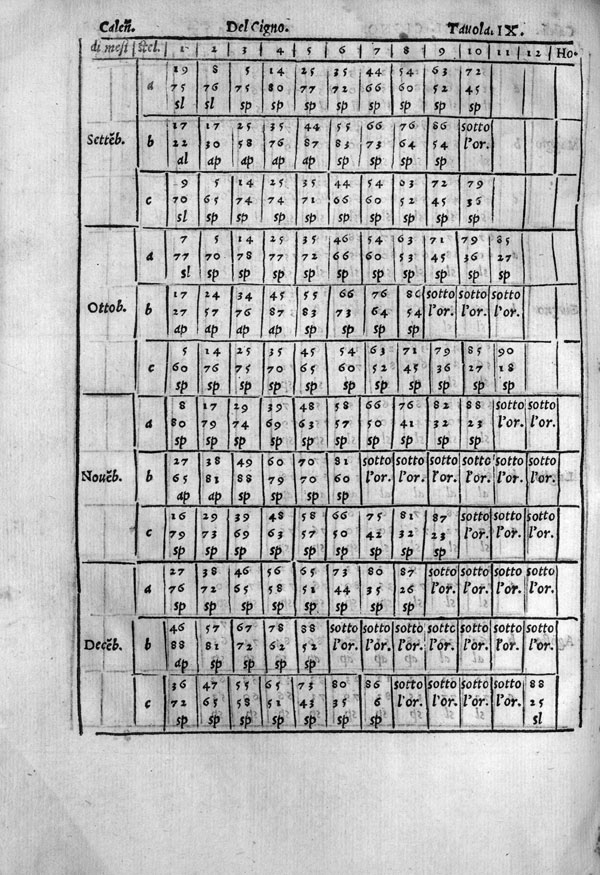 Caleñ. Del Cigno. Tavola. IX.
di mesi stel. 1 2 3 4 5 6 7 8 9 10 11 12 Ho.
19 8 5 14 25 35 44 54 63 72
a 75 76 75 80 77 72 66 60 52 45
sl sl sp sp sp sp sp sp sp sp
17 17 25 35 44 55 66 76 86 sotto
Settẽb. b 22 30 58 76 87 83 73 64 54 l'or.
al ap ap ap ap sp sp sp sp
9 5 14 25 35 44 54 63 72 79
c 70 65 74 74 71 66 60 52 45 36
sl sp sp sp sp sp sp sp sp sp
7 5 14 25 35 46 54 63 71 79 85
a 77 70 78 77 72 66 60 53 45 36 27
sl sp sp sp sp sp sp sp sp sp sp
17 24 34 45 55 66 76 86 sotto sotto sotto
Ottob. b 27 57 76 87 83 73 64 54 l'or. l'or. l'or.
ap ap ap ap sp sp sp sp
5 14 25 35 45 54 63 71 79 85 90
c 60 76 75 70 65 60 52 45 36 27 18
sp sp sp sp sp sp sp sp sp sp sp
8 17 29 39 48 58 66 76 82 88 sotto sotto
a 80 79 74 69 63 57 50 41 32 23 l'or. l'or.
sp sp sp sp sp sp sp sp sp sp
27 38 49 60 70 81 sotto sotto sotto sotto sotto sotto
Novẽb. b 65 81 88 79 70 60 l'or. l'or. l'or. l'or. l'or. l'or.
ap ap sp sp sp sp
16 29 39 48 58 66 75 81 87 sotto sotto sotto
c 79 73 69 63 57 50 42 32 23 l'or. l'or. l'or.
sp sp sp sp sp sp sp sp sp
27 38 46 56 65 73 80 87 sotto sotto sotto sotto
a 76 72 65 58 51 44 35 26 l'or. l'or. l'or. l'or.
sp sp sp sp sp sp sp sp
46 57 67 78 88 sotto sotto sotto sotto sotto sotto sotto
Decẽb. b 88 81 72 62 52 l'or. l'or. l'or. l'or. l'or. l'or. l'or.
ap sp sp sp sp
36 47 55 65 73 80 86 sotto sotto sotto sotto 88
c 72 65 58 51 43 35 6 l'or. l'or. l'or. l'or. 25
sp sp sp sp sp sp sp sl